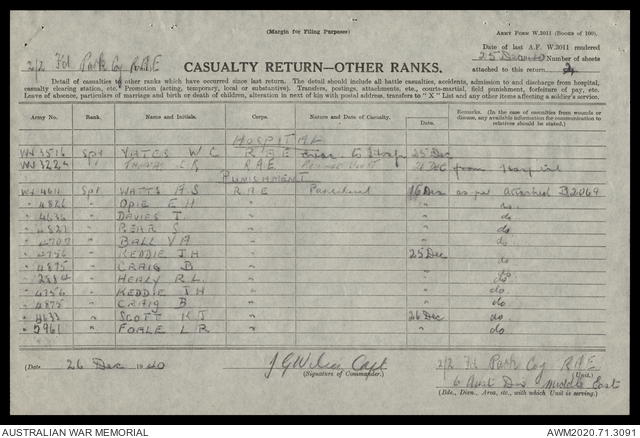 (Margin for Filing Purposes)
ARMY FORM W.3011 (BOOKS OF 100).
2/2 Fd. Park Coy R.A.E
Date of last A.F. W.3011 rendered
25 Dec 40 Number of sheets
attached to this return 2.
CASUALTY RETURN—OTHER RANKS.
Detail of casualties to other ranks which have occurred since last return. The detail should include all battle casualties, accidents, admission to and discharge from hospital,
casualty clearing station, etc. Promotion (acting, temporary, local or substantive). Transfers, postings, attachments, etc., courts-martial, field punishment, forfeiture of pay, etc.
Leave of absence, particulars of marriage and birth or death of children, alteration in next of kin with postal address, transfers to "X" List and any other items affecting a soldier's service.
Army No. Rank. Name and Initials. Corps. Nature and Date of Casualty. Date. Remarks. (In the case of casualties from wounds or disease, any available information for communication to relatives should be stated.)
HOSPITAL
WX 3516 Spr YATES W C RAE to Hosp 25 Dec
RAE 26 Dec from hospital
PUNISHMENT
Spr WATTS A.S RAE Punished 16 Dec as per attached B2069
" 4826 " OPIE E H " " " do
" 4636 " DAVIES T. " " " do
" 4827 " " " " do
" 4707 " BALL V A " " " do
" 4756 " KEDDIE J H " " 25 Dec do
" 4875 " CRAIG B " " " do
" " HEALY R L. " " " do
" 4756 " KEDDIE J H " " " do
" 4875 " CRAIG B " " " do
" 4633 " SCOTT K J " " 26 Dec do.
" 5961 " FOALE L R " " " do
(Date 26 Dec 1940
Capt
(Signature of Commander.)
2/2 Fd Park Coy R.A.E
(Unit.)
6 Aust Div Middle East
(Bde., Divn., Area, etc., with which Unit is serving.)
AUSTRALIAN WAR MEMORIAL
AWM2020.71.3091